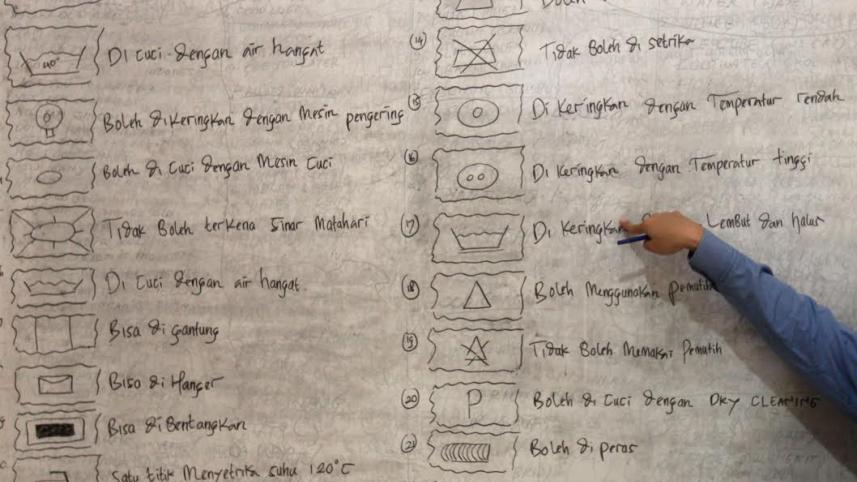 40°
Di cuci dengan air hangat
Boleh dikeringkan dengan Mesin pengering
Boleh di Cuci dengan Mesin Cuci
Tidak Boleh terkena Sinar Matahari
Di Cuci dengan air hangat
Bisa di gantung
Bisa di Hanger
Bisa di Bentangkan
Satu titik Menyetrika suhu 120°C
14 Tidak Boleh di setrika
15 Di Keringkan dengan Temperatur rendah
16 Di Keringkan dengan Temperatur tinggi
17 Di Keringkan Lembut dan halus
18 Boleh Menggunakan pemutih
19 Tidak Boleh Memakai Pemutih
20 P Boleh di Cuci dengan DRY CLEANING
21 Boleh di peras